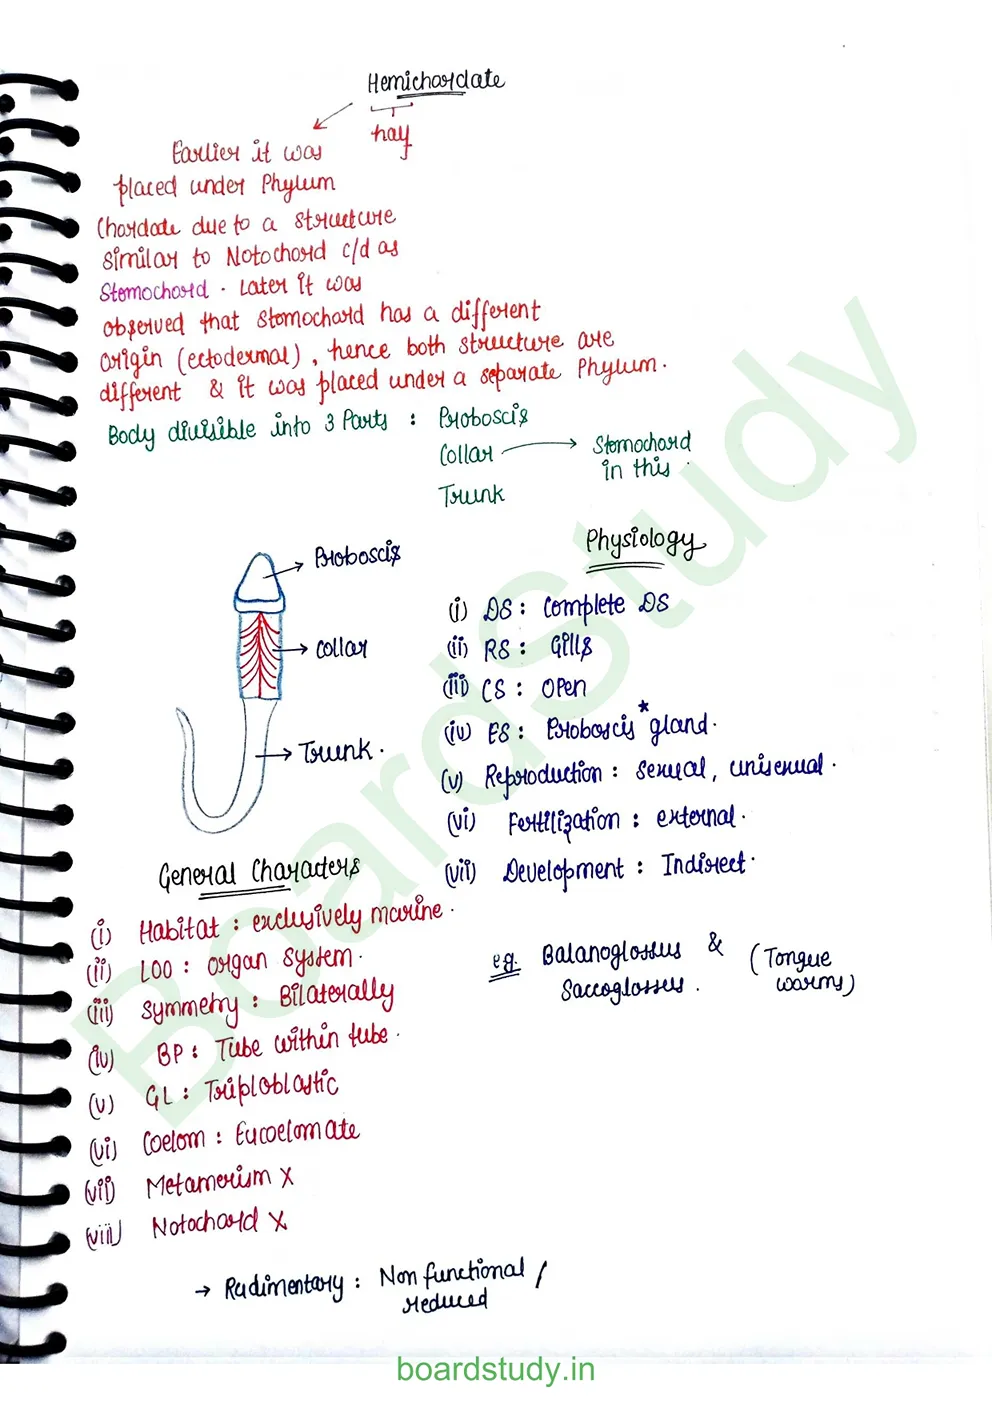 Hemichordate
half
Earlier it was
placed under Phylum
Chordate due to a structure
similar to Notochord c/d as
Stomochord. Later it was
observed that stomochord has a different
origin (ectodermal), hence both structure are
different & it was placed under a separate Phylum.
Body divisible into 3 Parts : Proboscis
Collar → Stomochord
in this.
Trunk
→ Proboscis
→ collar
→ Trunk.
Physiology
(i) DS : Complete DS
(ii) RS : Gills
(iii) CS : Open
(iv) ES : Proboscis* gland.
(v) Reproduction : sexual, unisexual.
(vi) Fertilization : external.
(vii) Development : Indirect.
eg. Balanoglossus & (Tongue
Saccoglossus. worms)
General Characters
(i) Habitat : exclusively marine.
(ii) LOO : organ system.
(iii) Symmetry : Bilaterally
(iv) BP : Tube within tube.
(v) GL : Triploblastic
(vi) Coelom : Eucoelomate
(vii) Metamerism X
(viii) Notochord X
→ Rudimentary : Non functional /
reduced
BoardStudy
boardstudy.in